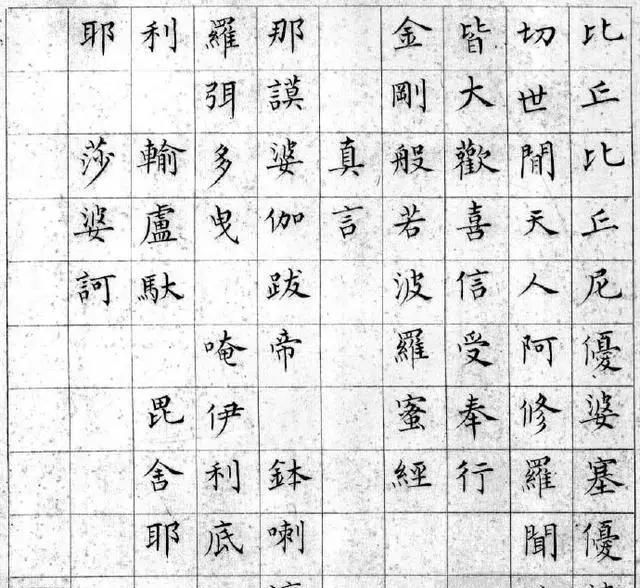 比丘比丘尼優婆塞優
切世間天人阿修羅聞
皆大歡喜信受奉行
金剛般若波羅蜜經
真言
那謨婆伽跋帝 鉢喇
羅弭多曳 唵伊利底
利 輸盧馱 毘舍耶
耶 莎婆訶